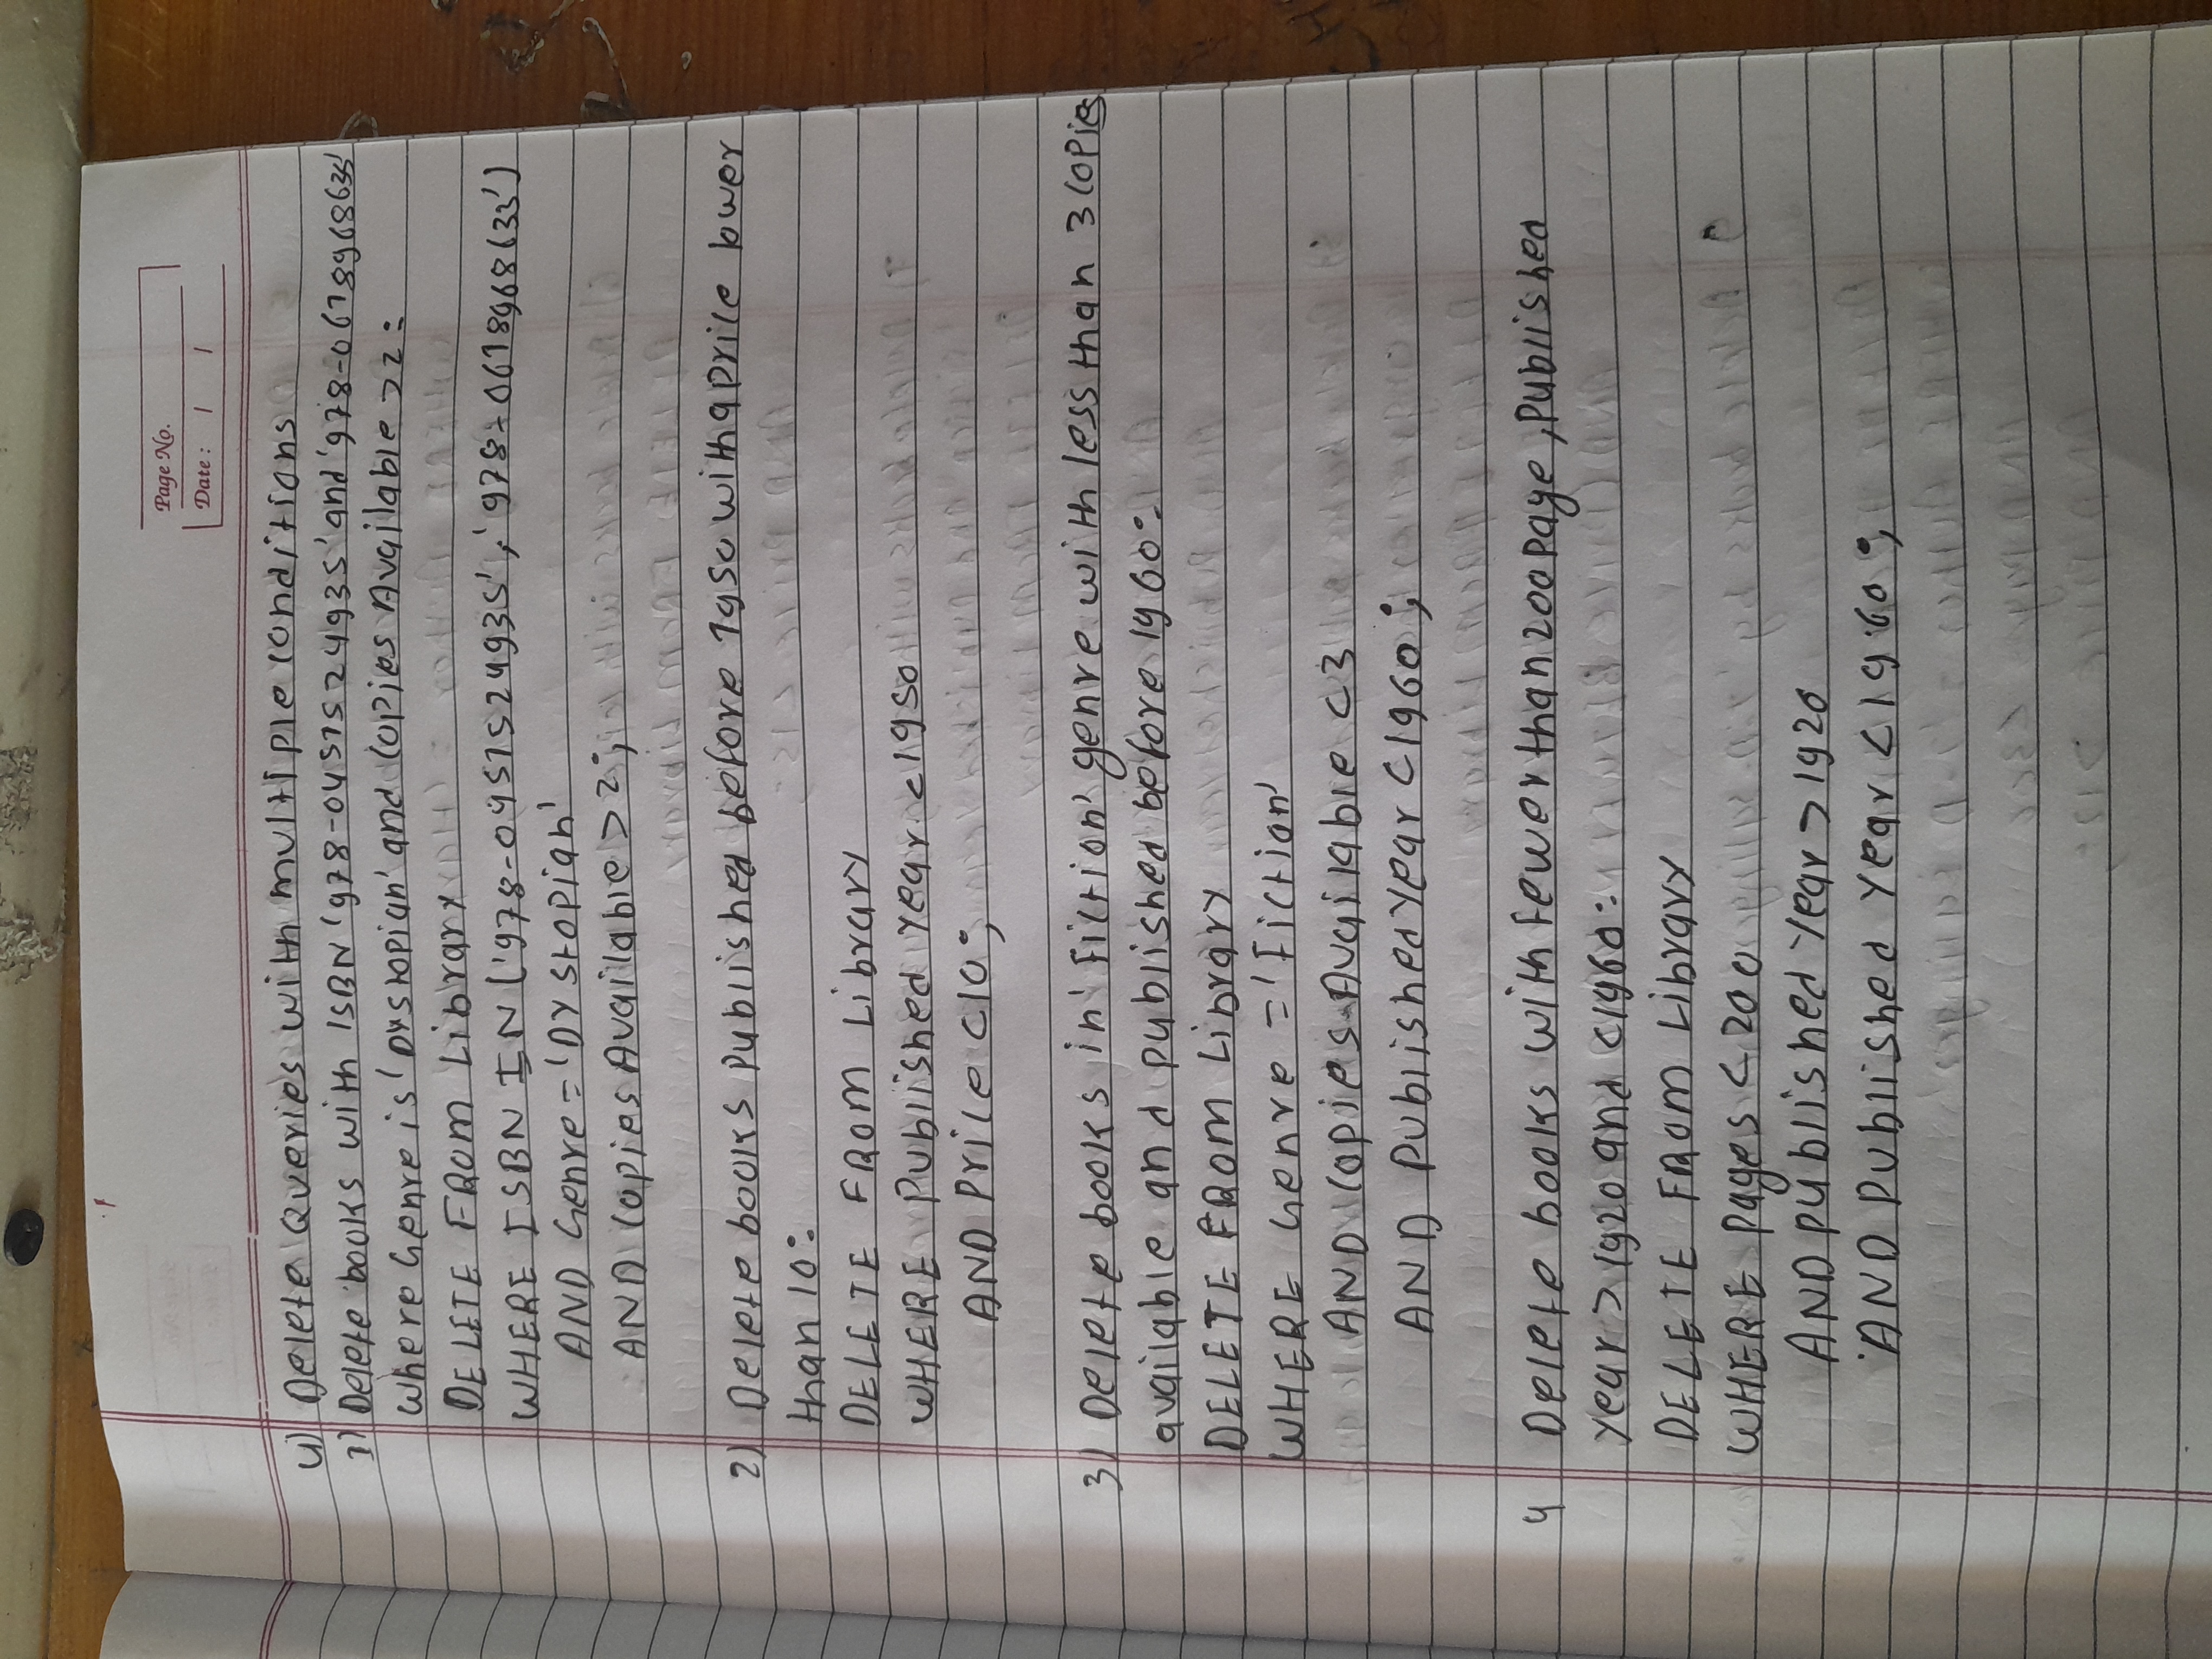 Page No.
Date :
4) Delete Queries with multiple conditions
1) Delete books with ISBN '978-0451524935' and '978-0618968633'
where Genre is 'Dystopian' and Copies Available >2:
DELETE FROM Library
WHERE ISBN IN ('978-0451524935', '978-0618968633')
AND Genre = 'Dystopian'
AND Copies Available >2;
2) Delete books Published before 1950 with a price lower
than 10:
DELETE FROM Library
WHERE Published Year <1950
AND Price <10;
3) Delete books in 'Fiction' genre with less than 3 copies
available and published before 1960:
DELETE FROM Library
WHERE Genre = 'Fiction'
AND Copies Available <3
AND PublishedYear <1960;
4 Delete books with fewer than 200 page, Published
Year > 1920 and <1960:
DELETE FROM Library
WHERE Pages < 200
AND published Year > 1920
AND Published Year < 1960;